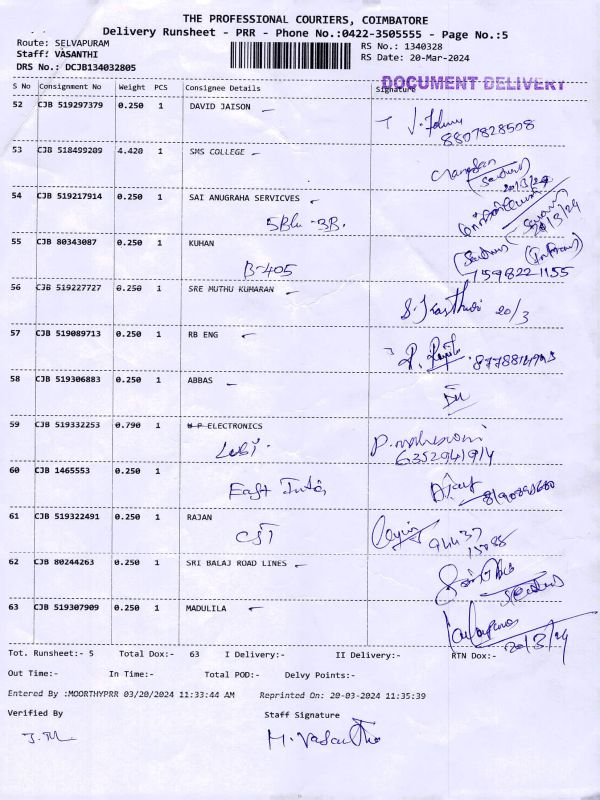 THE PROFESSIONAL COURIERS, COIMBATORE
Delivery Runsheet - PRR - Phone No.:0422-3505555 - Page No.:5
Route: SELVAPURAM RS No.: 1340328
Staff: VASANTHI RS Date: 20-Mar-2024
DRS No.: DCJB134032805
DOCUMENT DELIVERY
S No Consignment No Weight PCS Consignee Details Signature
52 CJB 519297379 0.250 1 DAVID JAISON
8807828508
53 CJB 518499209 4.420 1 SMS COLLEGE
20/3/24
54 CJB 519217914 0.250 1 SAI ANUGRAHA SERVICVES
20/3/24
55 CJB 80343087 0.250 1 KUHAN
B-405 7598221155
56 CJB 519227727 0.250 1 SRE MUTHU KUMARAN
20/3
57 CJB 519089713 0.250 1 RB ENG
58 CJB 519306883 0.250 1 ABBAS
59 CJB 519332253 0.790 1 W P ELECTRONICS
6352941914
60 CJB 1465553 0.250 1
61 CJB 519322491 0.250 1 RAJAN
CST 94437
62 CJB 80244263 0.250 1 SRI BALAJ ROAD LINES
63 CJB 519307909 0.250 1 MADULILA
20/3/24
Tot. Runsheet:- S Total Dox:- 63 I Delivery:- II Delivery:- RTN Dox:-
Out Time:- In Time:- Total POD:- Delvy Points:-
Entered By :MOORTHYPRR 03/20/2024 11:33:44 AM Reprinted On: 20-03-2024 11:35:39
Verified By Staff Signature
M. Vasantha